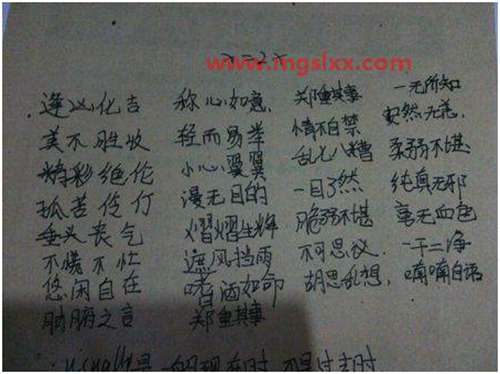 www.mgslxx.com
逢凶化吉 称心如意, 郑重其事 一无所知
美不胜收 轻而易举 情不自禁 安然无恙,
精彩绝伦 小心翼翼 乱七八糟 柔弱不堪
孤苦伶仃 漫无目的 一目了然 纯真无邪
垂头丧气 熠熠生辉 脆弱不堪 毫无血色
不慌不忙 遮风挡雨 不可思议. 一干二净
悠闲自在 嗜酒如命 胡思乱想, 喃喃自语
肺腑之言 郑重其事